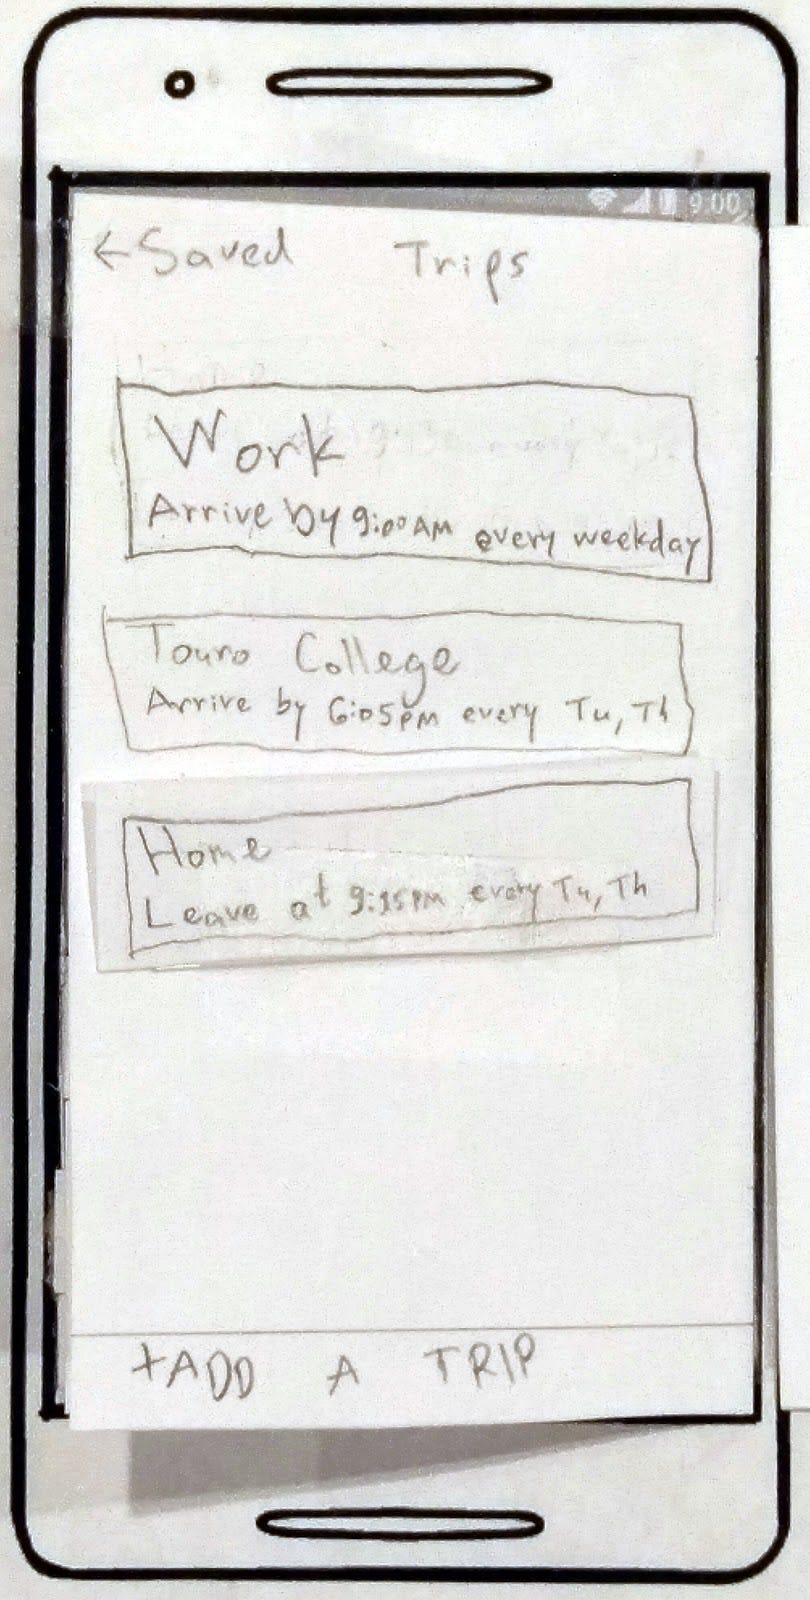 9:00
←Saved Trips
Work
Arrive by 9:00AM every weekday
Touro College
Arrive by 6:05pm every Tu, Th
Home
Leave at 9:15PM every Tu, Th
+ADD A TRIP